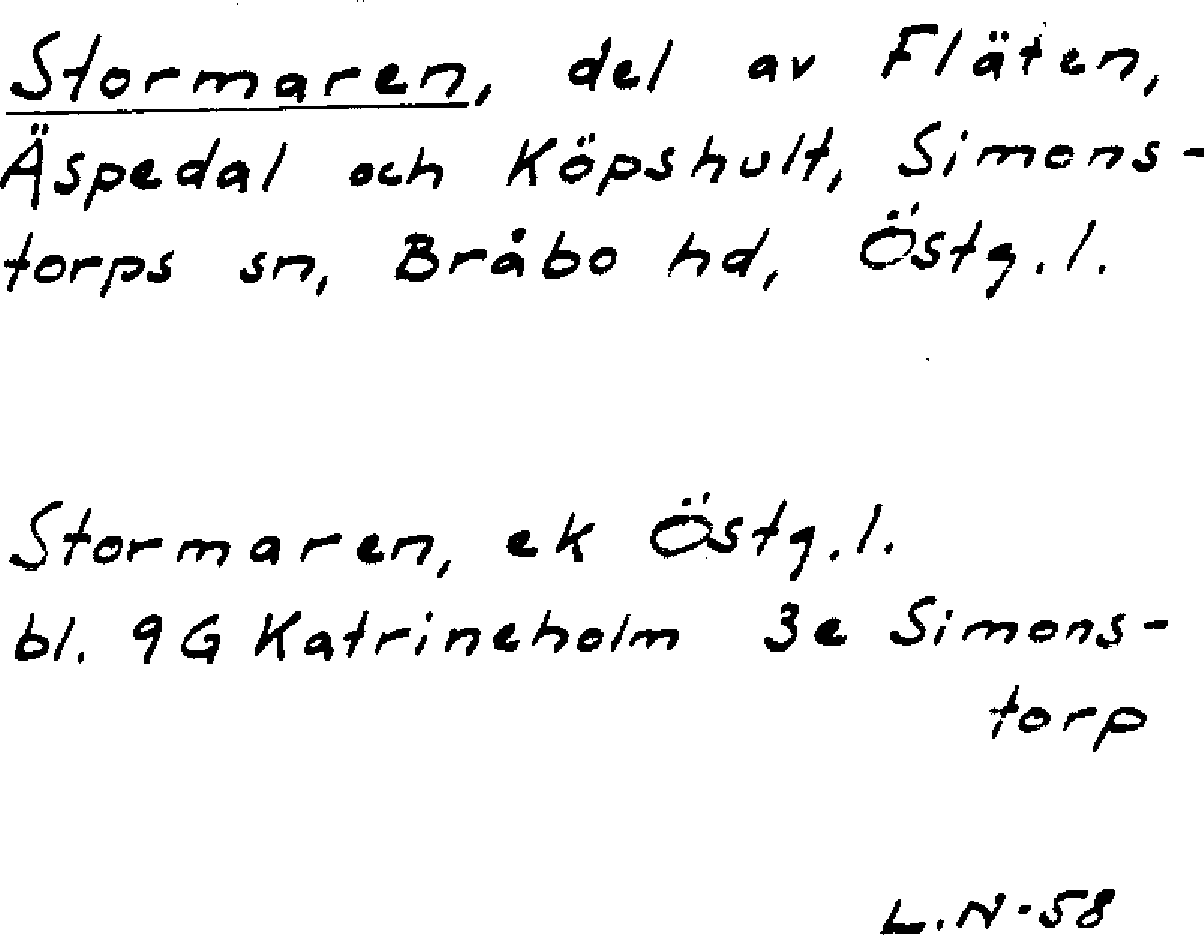 Stormaren, del av Fläten,
Äspedal och Köpshult, Simons-
torps sn, Bråbo hd, Östg.l.
Stormaren, ek Östg.l.
bl. 9G Katrineholm 3e Simons-
torp
L.N-58